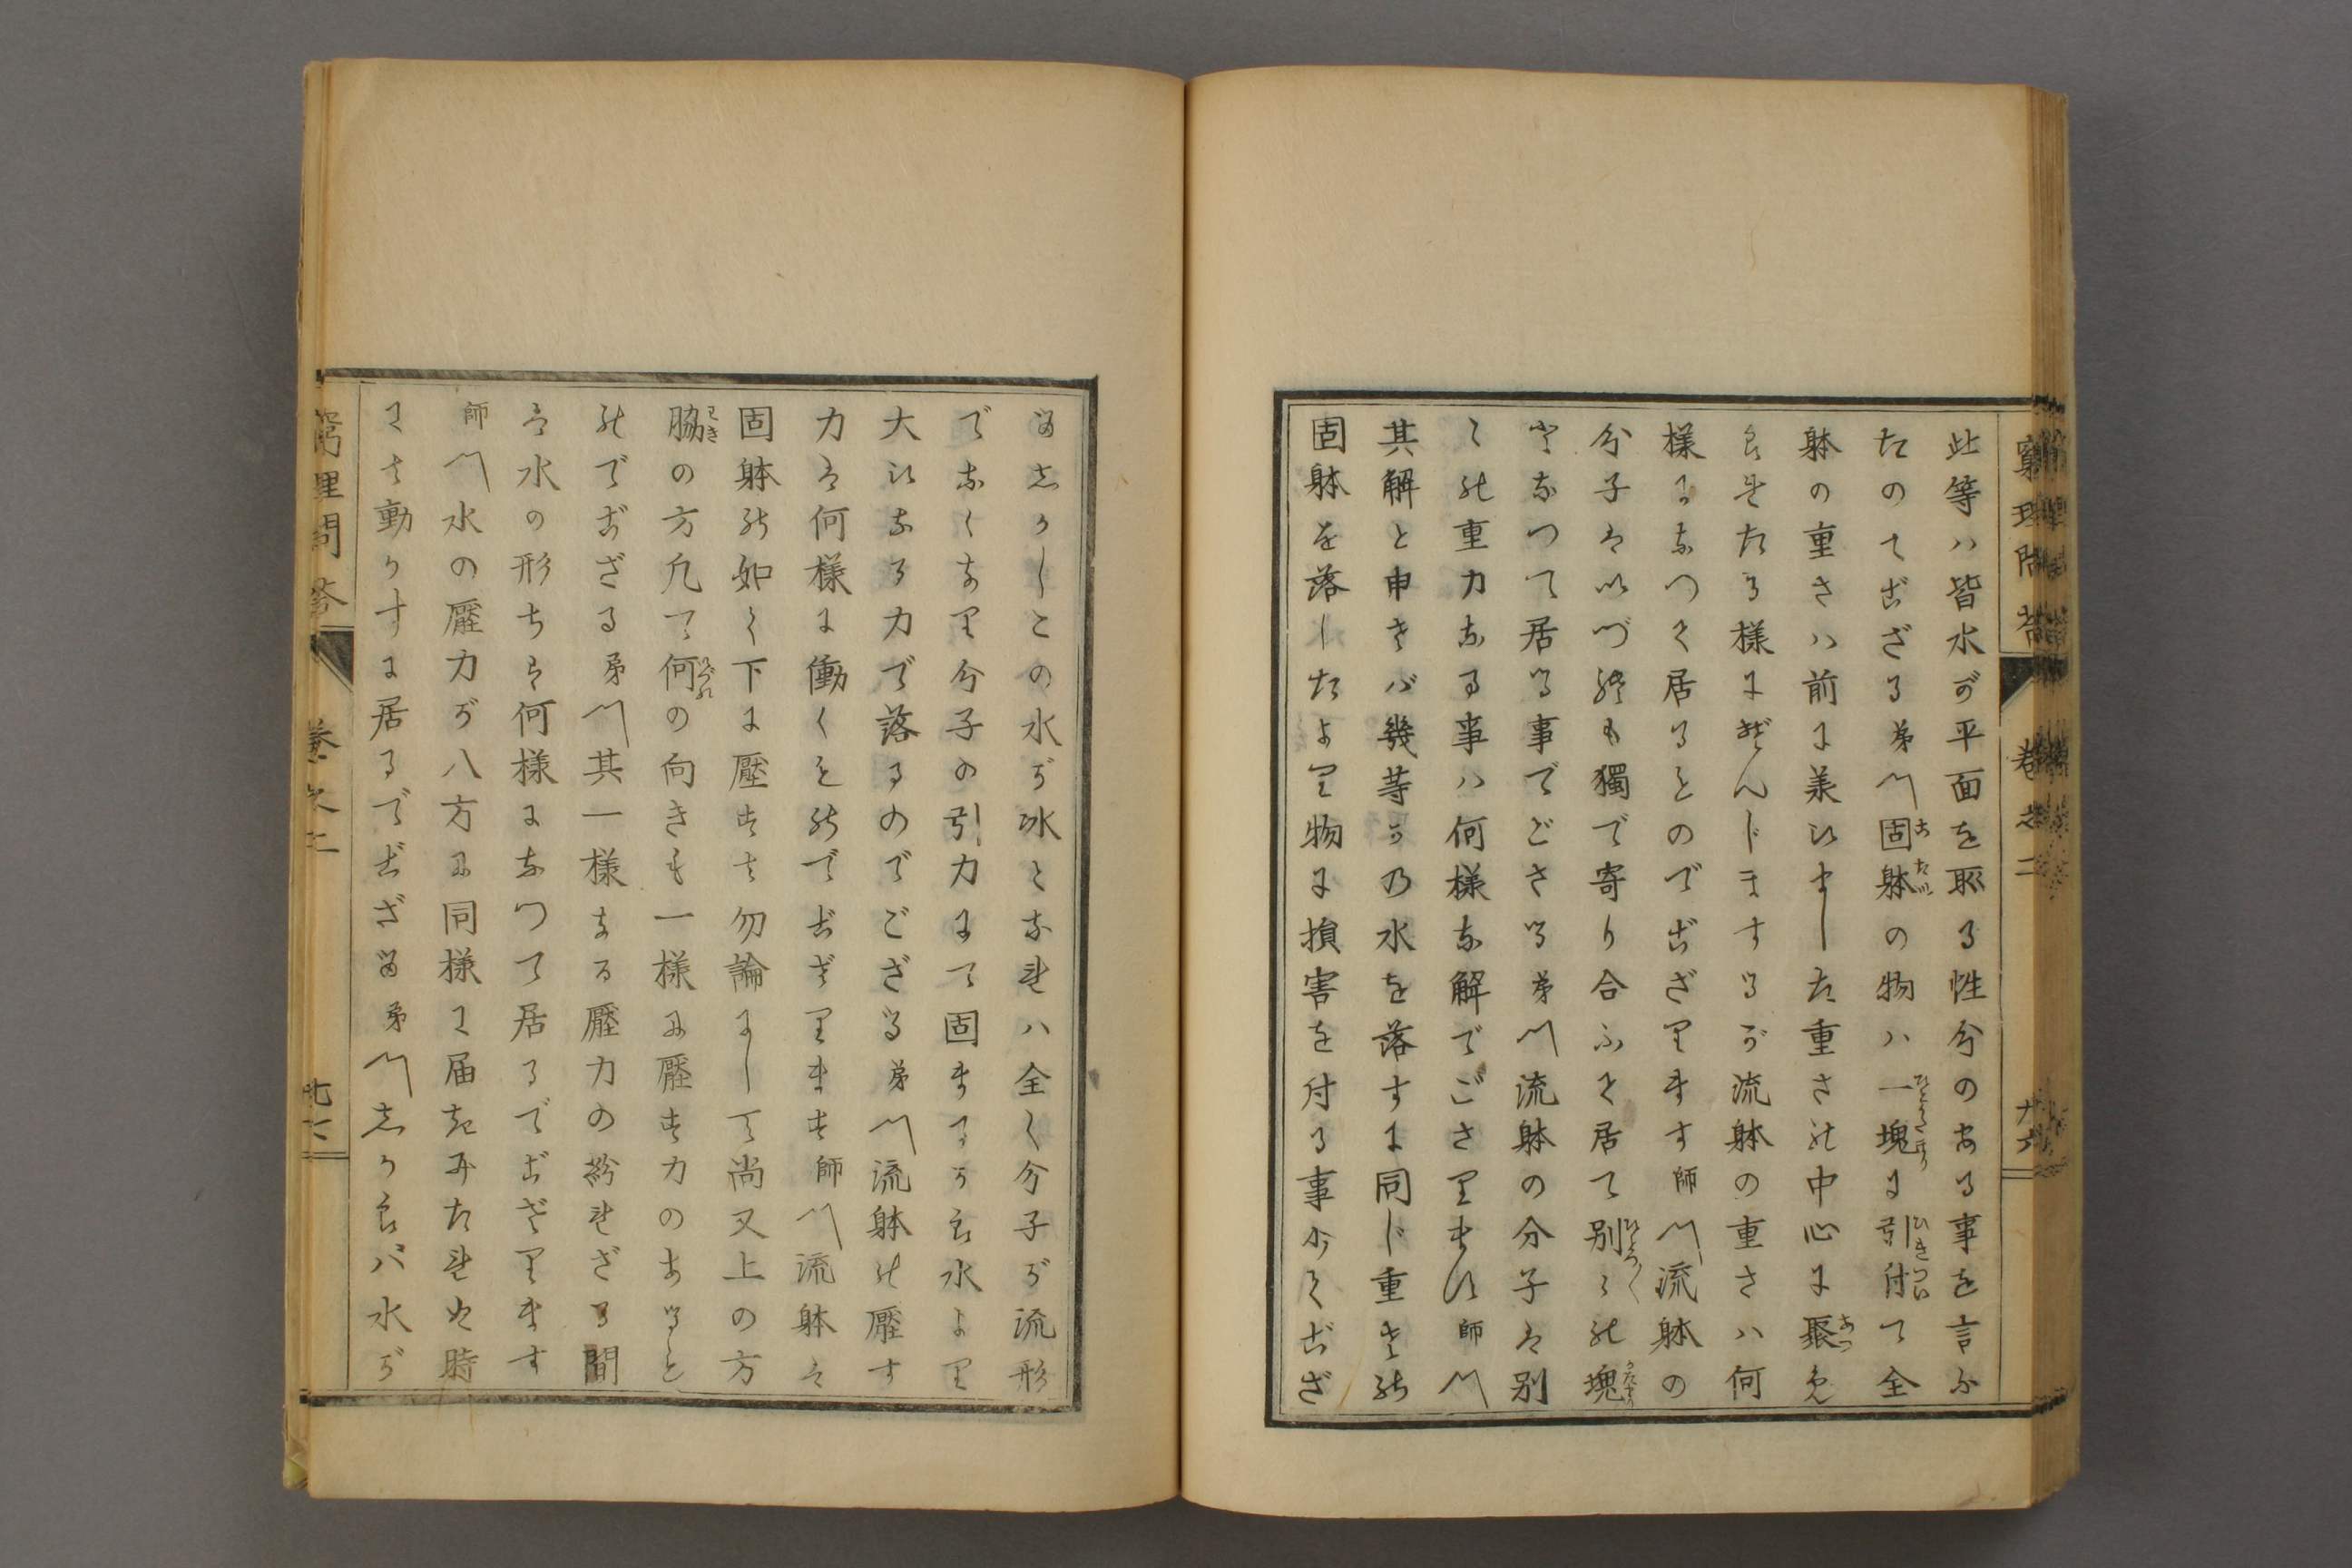 窮理問答 卷之二 十六
此等ハ皆水が平面を取る性分のある事を言ふ
たのでござる弟〽固躰の物ハ一塊に引付て全
躰の重さハ前に承いました重さの中心に聚め
られたる様にぞんじまするが流躰の重さハ何
様になつて居るものでござります師〽流躰の
分子はいづれも獨で寄り合ふて居て別々の塊
となつて居る事でござる弟〽流躰の分子は別
々の重力ある事ハ何様な解でござりまい師〽
其解と申さば幾等かの水を落すに同じ重さの
固躰を落したより物に損害を付る事少くござ
るしかしこの水が氷となれハ全く分子が流形
でなくなり分子の引力にて固まるから水より
大いなる力で落るのでござる弟〽流躰の壓す
力は何様に働くものでござります師〽流躰は
固躰の如く下に壓すは勿論にして尚又上の方
脇の方凡て何の向きも一樣に壓す力のあると
のでござる弟〽其一樣なる壓力の紛れざる間
は水の形ちは何樣になつて居るでござります
師〽水の壓力が八方に同樣に届きみたれぬ時
には動かすに居るでござる弟〽しからバ水が
窮理問答 卷之二